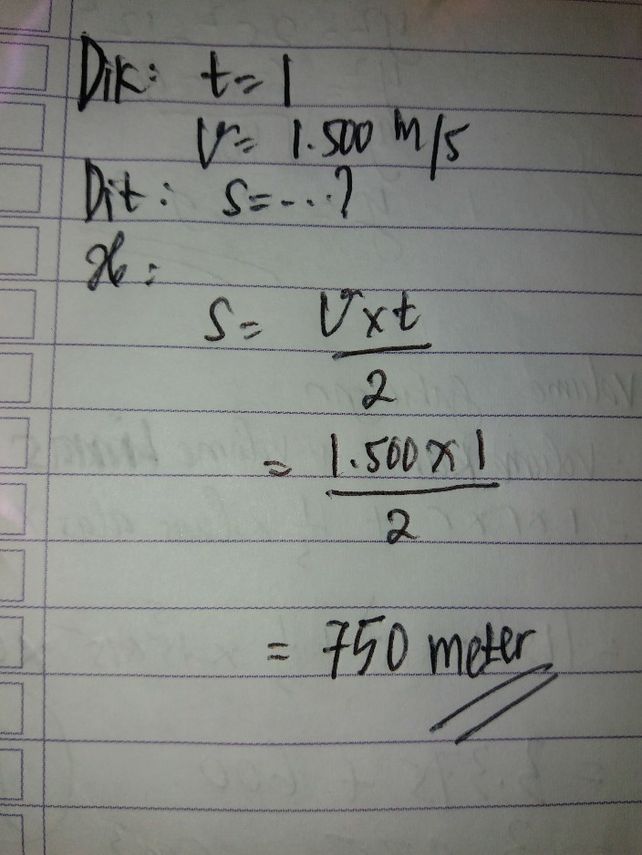 Dik: t = 1
V = 1.500 m/s
Dit: S = ...?
S = V x t
2
= 1.500 x 1
2
= 750 meter